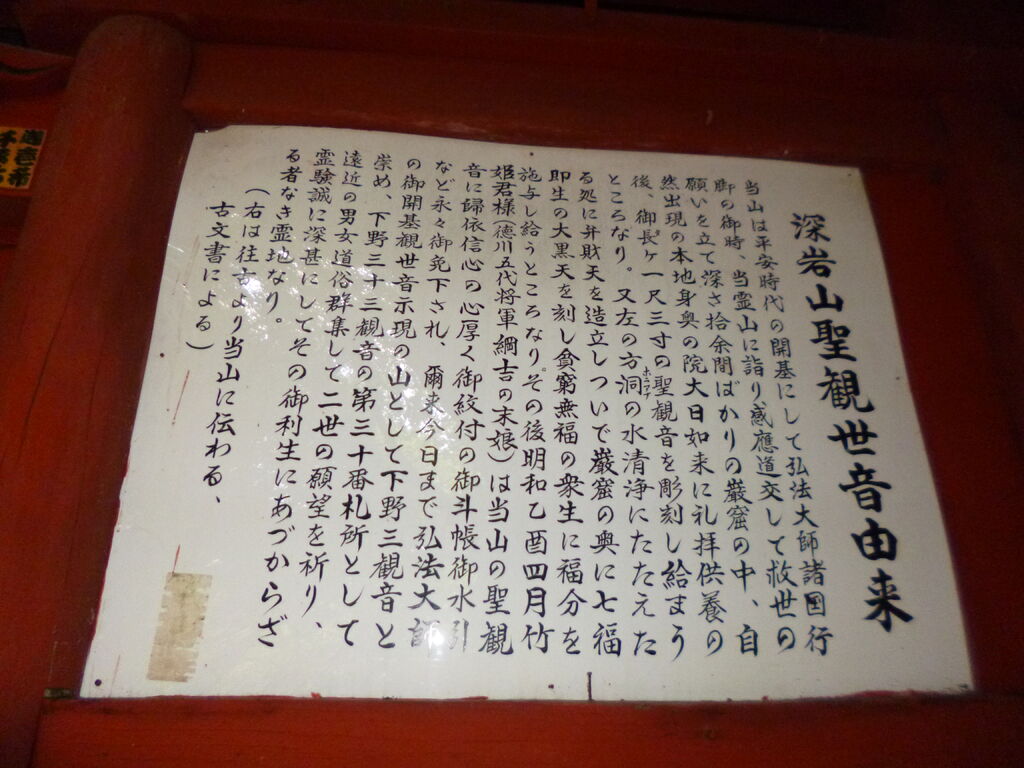 深岩山聖観世音由来
当山は平安時代の開基にして弘法大師諸国行
脚の御時、当霊山に詣り感應道交して救世の
願いを立て深さ拾余間ばかりの巌窟の中、自
然出現の本地身奥の院大日如来に礼拝供養の
後、御長ヶ一尺三寸の聖観音を彫刻し給まう
ところなり。又左の方洞の水清浄にたたえた
る処に弁財天を造立しついで巌窟の奥に七福
即生の大黒天を刻し貧窮無福の衆生に福分を
施与し給うところなり。その後明和乙酉四月竹
姫君様(徳川五代将軍綱吉の末娘)は当山の聖観
音に歸依信心の心厚く御紋付の御斗帳御水引
など永々御免下され、爾来今日まで弘法大師
の御開基観世音示現の山として下野三観音と
崇め、下野三十三観音の第三十番札所として
遠近の男女道俗群集して二世の願望を祈り、
霊験誠に深甚にしてその御利生にあづからざ
る者なき霊地なり。
(右は往古より当山に伝わる、
古文書による)